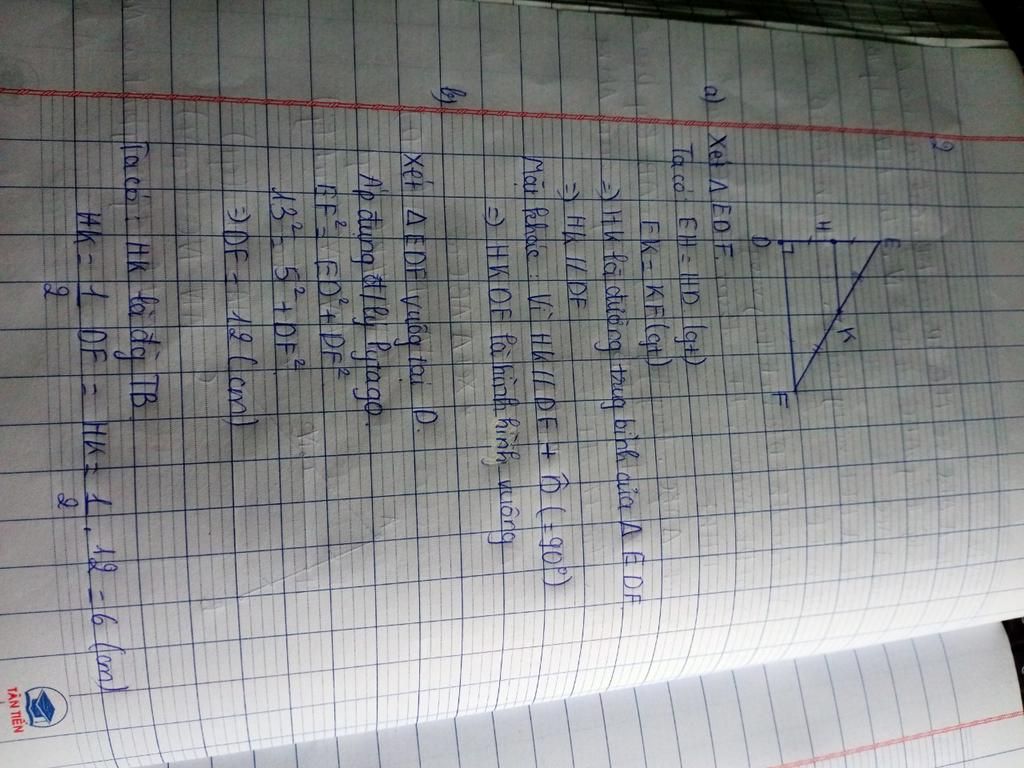 2
E
H
K
D
F
a) Xét Δ EDF
Ta có: EH = HD (gt)
EK = KF (gt)
=) HK là đường trung bình của Δ EDF
=) HK // DF
Mặt khác: Vì HK // DF + D̂ (= 90°)
=) HKDF là hình hình vuông
b)
Xét Δ EDF vuông tại D.
Áp dụng đ/lý pytago.
EF² = ED² + DF²
13² = 5² + DF²
=) DF = 12 (cm)
Ta có: HK là đg TB
HK = 1/2 DF = HK = 1/2 . 12 = 6 (cm)
TÂN TIẾN